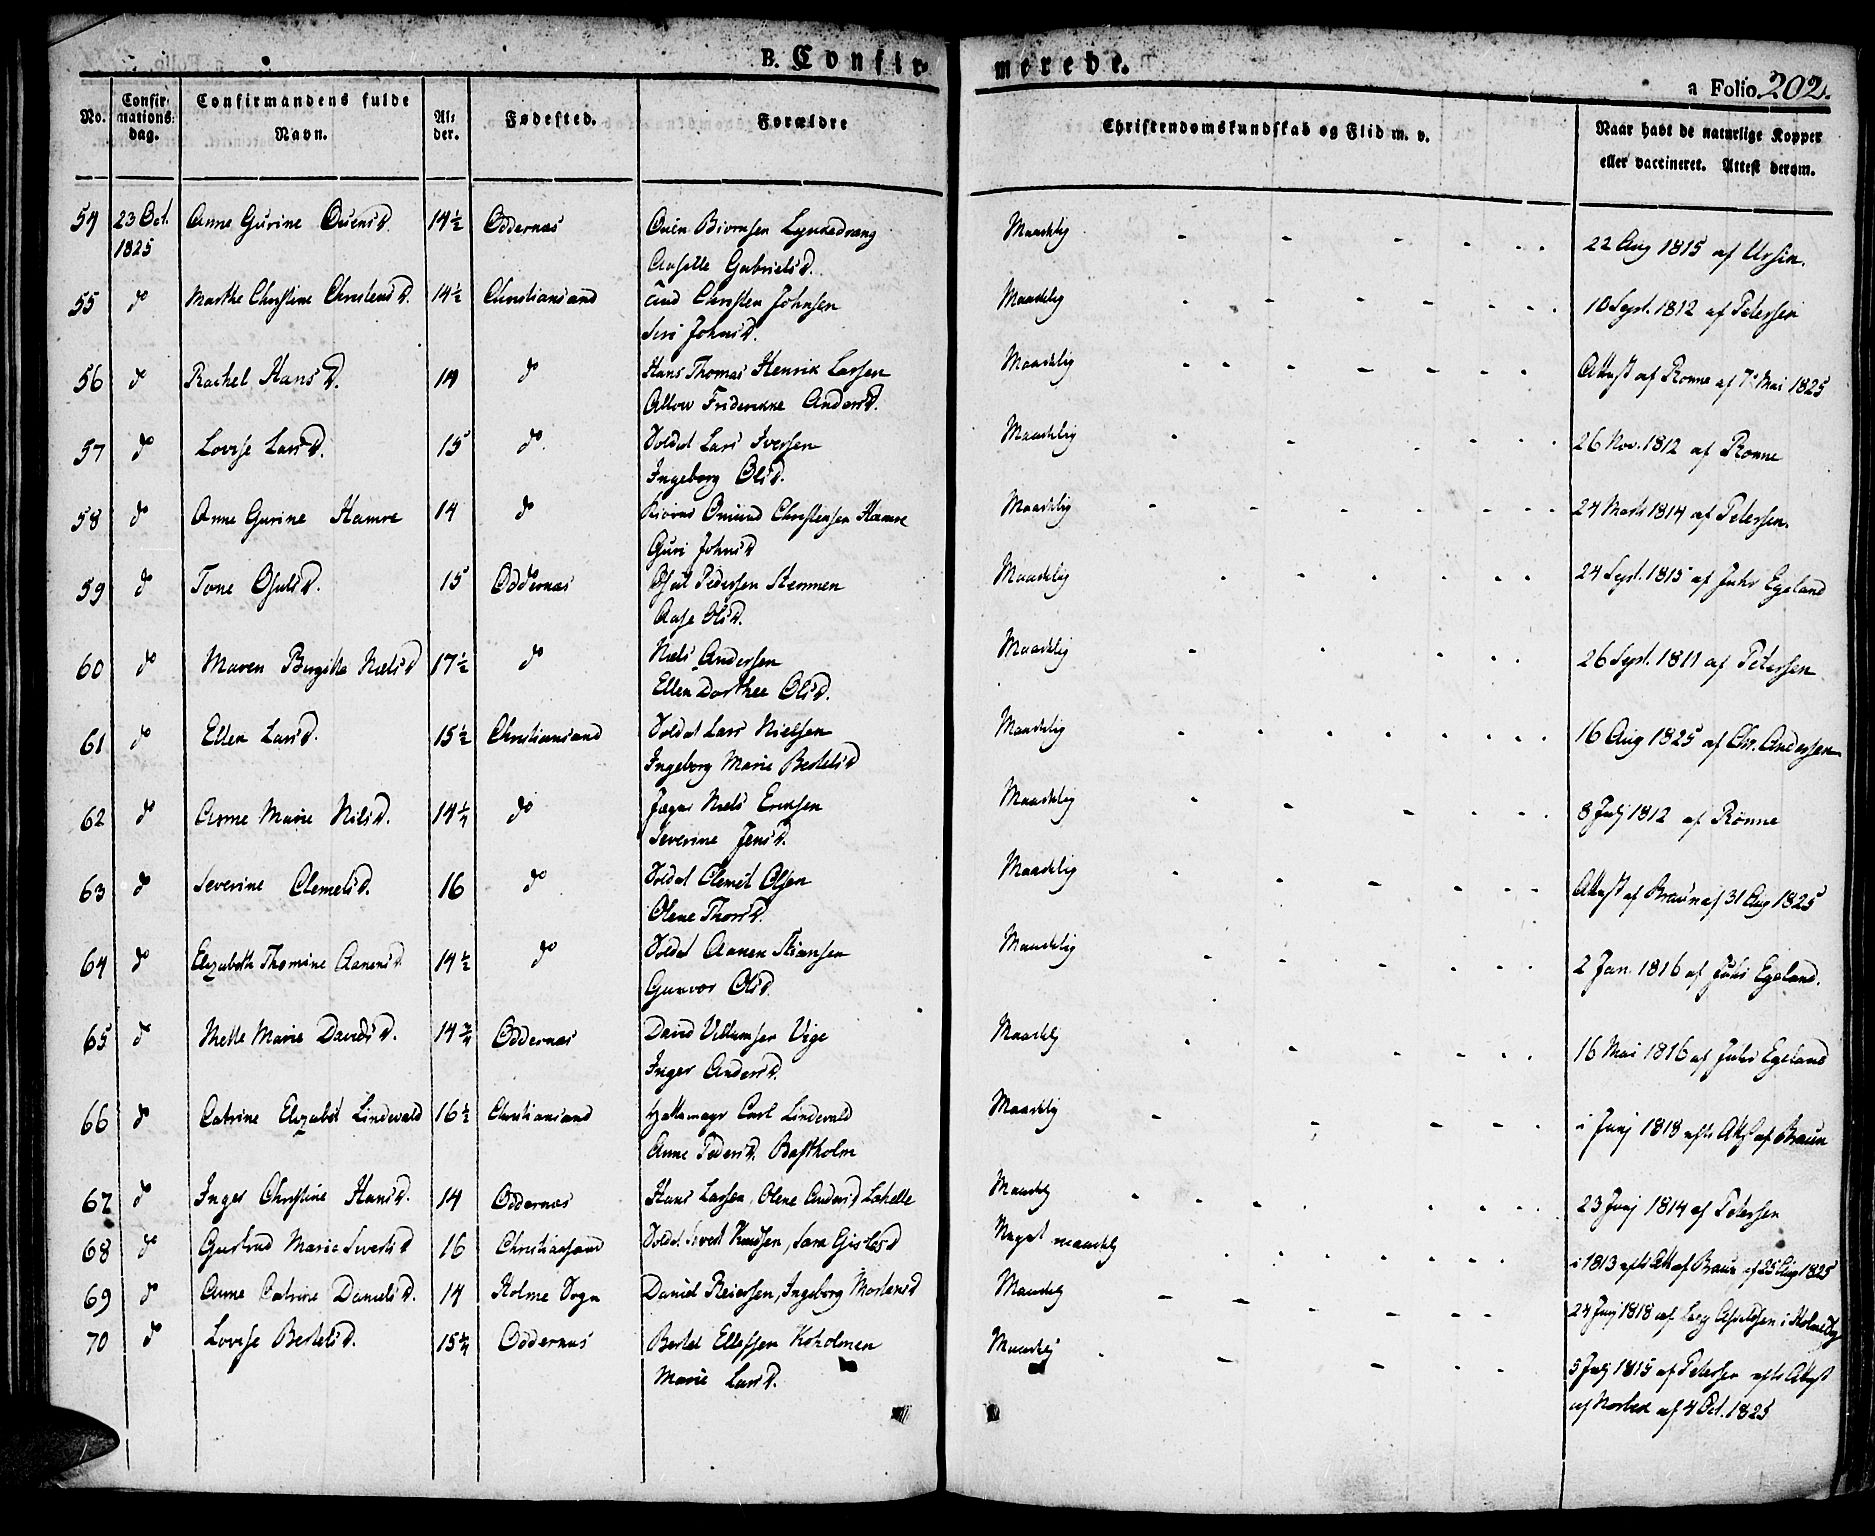 B. Confir-
merede.
a Folio 202.
No.
Confir-
mations-
dag.
Confirmandens fulde
Navn.
Al-
der.
Fødested.
Forældre
Christendomskundskab og Flid m. v.
Naar havt de naturlige Kopper
eller vaccineret. Attest derom.
54 23 Oct. Anne Gurine Ouensd. 14½ Oddernæs Ouen Biørnsen Maadelig 22 Aug 1815 af Ursin.
1825 Gabrielsd.
55 do Marthe Christine Christensd. 14½ Christiansand Christen Johnsen Maadelig 10 Sept. 1812 af Petersen
Siri Johnsd.
56 do Rachel Hansd. 14 do Hans Thomas Henrik Larsen Maadelig Attest af Rønne af 7de Mai 1825
Friderikke Andersd.
57 do Lovise Larsd. 15 do Soldat Lars Iversen Maadelig 26 Nov. 1812 af Rønne
Ingeborg Olsd.
58 do Anne Gurine Hamre 14 do Omund Christensen Hamre Maadelig 24 Marti 1814 af Petersen.
Guri Johnsd
59 do Tone Osulsd. 15 Oddernæs Osul Pedersen Maadelig 24 Sept. 1815 af Egeland
Aase Olsd.
60 do Maren Birgitte Nielsd 17½ do Niels Andersen Maadelig 26 Sept. 1811 af Petersen
Ellen Dorthee Olsd.
61 do Ellen Larsd. 15½ Christiansand Soldat Lars Nielsen Maadelig 16 Aug 1825 af Chr. Andersen
Ingeborg Marie Bertelsd
62 do Anne Marie Nilsd. 14¼ do Niels Ericksen Maadelig 8 Julj 1812 af Rönne
Severine Jensd.
63 do Severine Clemetsd. 16 do Soldat Clemet Olsen Maadelig Attest af Braun af 31 Aug 1825
Olene Thorsd.
64 do Elizabeth Thomine Aanensd 14½ do Soldat Aanen Maadelig 2 Jan. 1816 af Egeland.
Gunvor Olsd.
65 do Mette Marie Davidsd. 14¾ Oddernæs David Villumsen Vige Maadelig 16 Mai 1816 af Egeland
Inger Andersd.
66 do Catrine Elizabet Lindevald 16½ Christiansand Hattemager Carl Lindevald Maadelig i Junj 1818 efter Att. af Braun
Anne Pedersd. Bastholm
67 do Inger Christine Hansd. 14 Oddernæs Hans Larsen, Olene Andersd Maadelig 23 Junj 1814 af Petersen
68 do Gurtrud Marie Sivertsd 16 Christiansand Soldat Sivert Knudsen, Sara Meget maadelig i 1813 efter Att. af Braun af 25 Aug 1825
69 do Anne Catrine Danielsd. 14 Holme Sogn Daniel Reiersen, Ingeborg Mortensd Maadelig 24 Junj 1818 af i Holme
70 do Lovise Bertelsd. 15¾ Oddernæs Bertel Ellefsen Koholmen Maadelig 5 Julj 1815 af Petersen efter Attest
Marie Larsd. af af 4 Oct. 1825